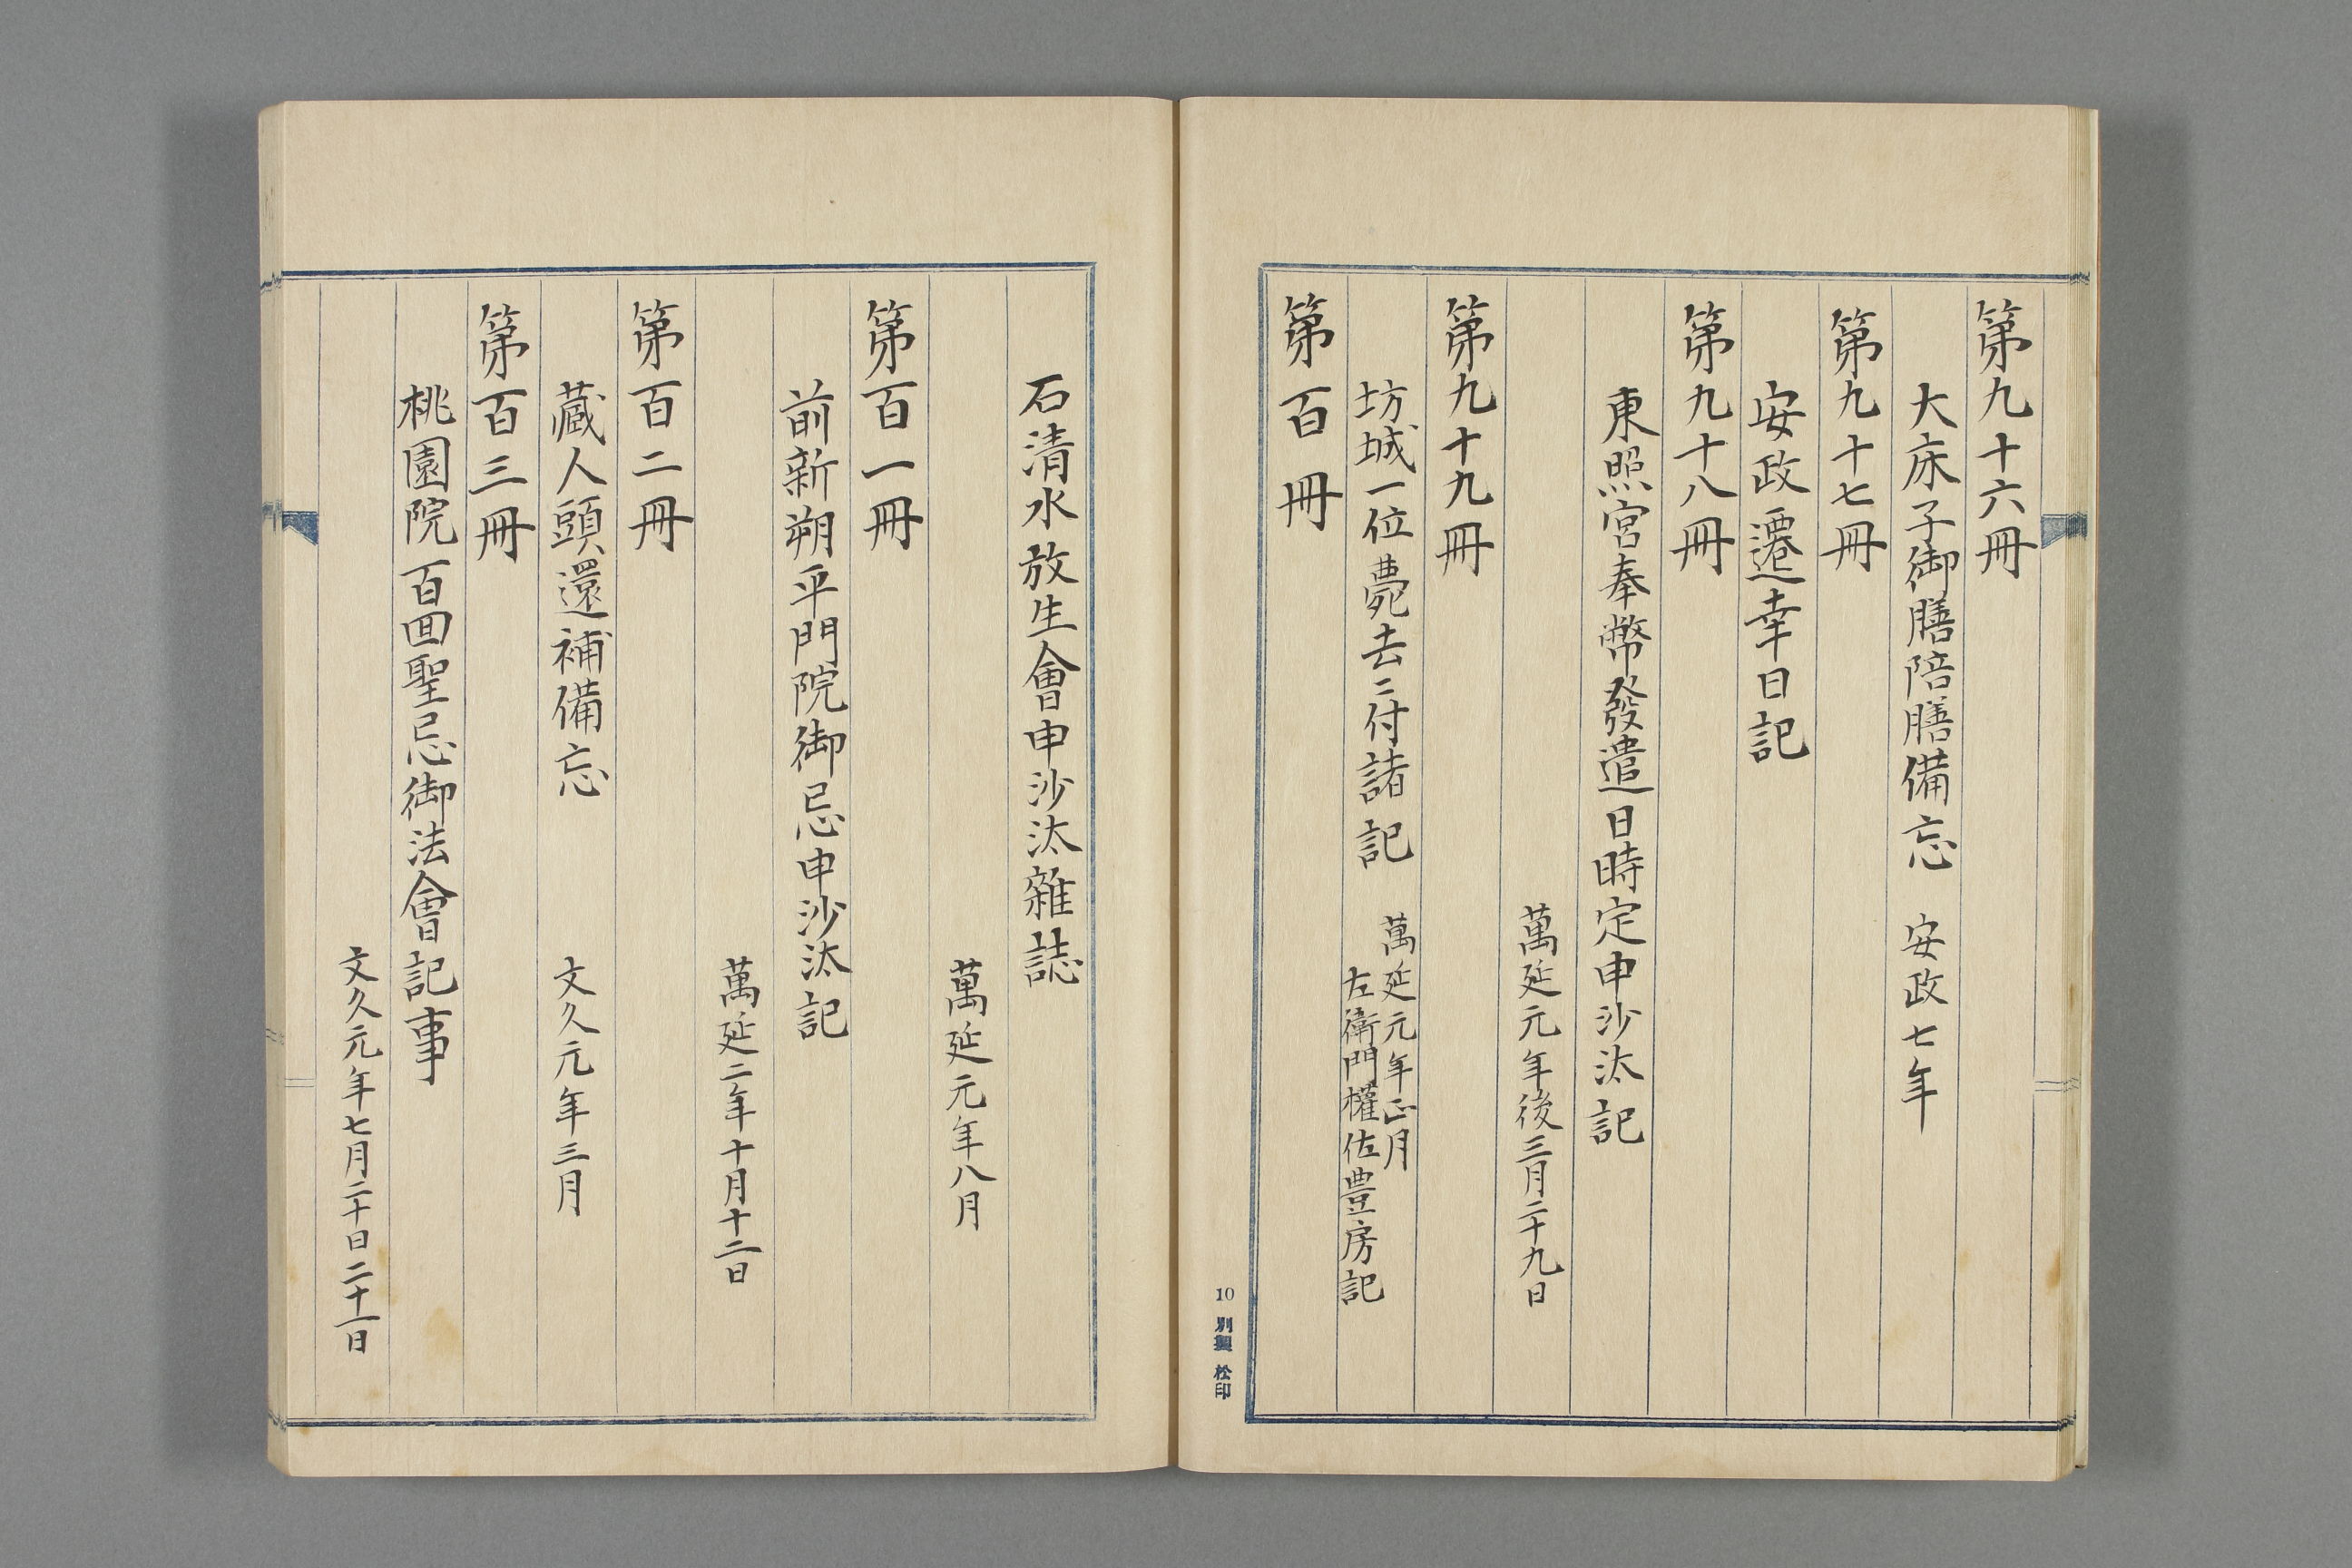 第九十六冊
大床子御膳陪膳備忘 安政七年
第九十七冊
安政遷幸日記
第九十八冊
東照宮奉幣發遣日時定申沙汰記
萬延元年後三月二十九日
第九十九冊
坊城一位薨去ニ付諸記 萬延元年正月
左衛門權佐豊房記
第百冊
10 別製 松印
石清水放生會申沙汰雜誌
萬延元年八月
第百一冊
前新朔平門院御忌申沙汰記
萬延二年十月十二日
第百二冊
藏人頭還補備忘 文久元年三月
第百三冊
桃園院百回聖忌御法會記事
文久元年七月二十日二十一日